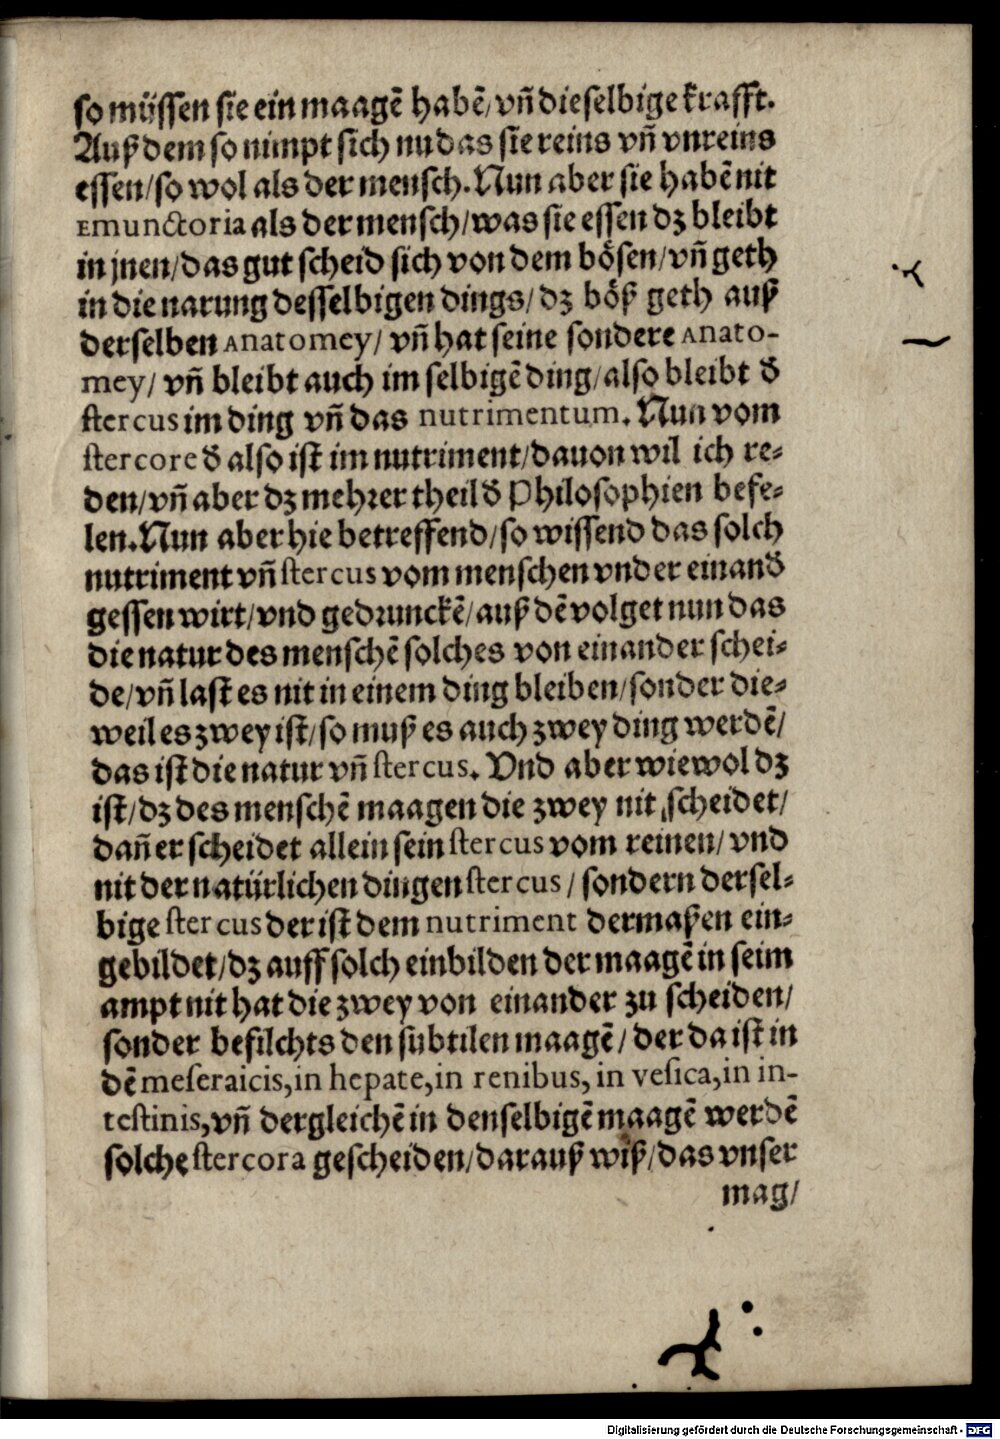 so müssen sie ein maagē habē/vñ dieselbige krafft.
Auß dem so nimpt sich nu das sie reins vñ vnreins
essen/so wol als der mensch. Nun aber sie habē nit
Emunctoria als der mensch/was sie essen dz bleibt
in jnen/das gut scheid sich von dem bösen/vñ geth
in die narung desselbigen dings/dz böß geth auß
derselben Anatomey/ vñ hat seine sondere Anato-
mey/ vñ bleibt auch im selbigē ding/also bleibt đ
stercus im ding vñ das nutrimentum. Nun vom
stercore đ also ist im nutriment/dauon wil ich re-
den/vñ aber dz mehrer theil đ Philosophien befe-
len. Nun aber hie betreffend/so wissend das solch
nutriment vñ stercus vom menschen vnder einanđ
gessen wirt/vnd gedrunckē/auß dē volget nun das
die natur des menschē solches von einander schei-
de/vñ last es nit in einem ding bleiben/sonder die-
weil es zwey ist/so muß es auch zwey ding werdē/
das ist die natur vñ stercus. Vnd aber wiewol dz
ist/dz des menschē maagen die zwey nit scheidet/
dañ er scheidet allein sein stercus vom reinen/ vnd
nit der natürlichen dingen stercus / sondern dersel-
bige stercus der ist dem nutriment dermaßen ein-
gebildet/dz auff solch einbilden der maagē in seim
ampt nit hat die zwey von einander zu scheiden/
sonder befilchts den subtilen maagē/ der da ist in
dē meseraicis, in hepate, in renibus, in vesica, in in-
testinis, vñ dergleichē in denselbigē maagē werdē
solche stercora gescheiden/darauß wiß/das vnser
mag/
Digitalisierung gefördert durch die Deutsche Forschungsgemeinschaft - DFG